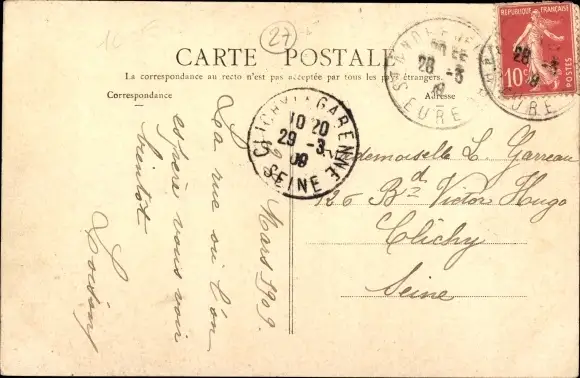 27
CARTE POSTALE
La correspondance au recto n'est pas acceptée par tous les pays étrangers.
Correspondance
Adresse
REPUBLIQUE FRANÇAISE
10c
POSTES
28 -3
09
EURE
28 -3
EURE
CLICHY-LA-GARENNE
10 20
29 -3
09
SEINE
Mars 1909.
La rue où l'on
espère vous voir
bientôt
Mademoiselle L. Garreau
126 Bd Victor Hugo
Clichy
Seine